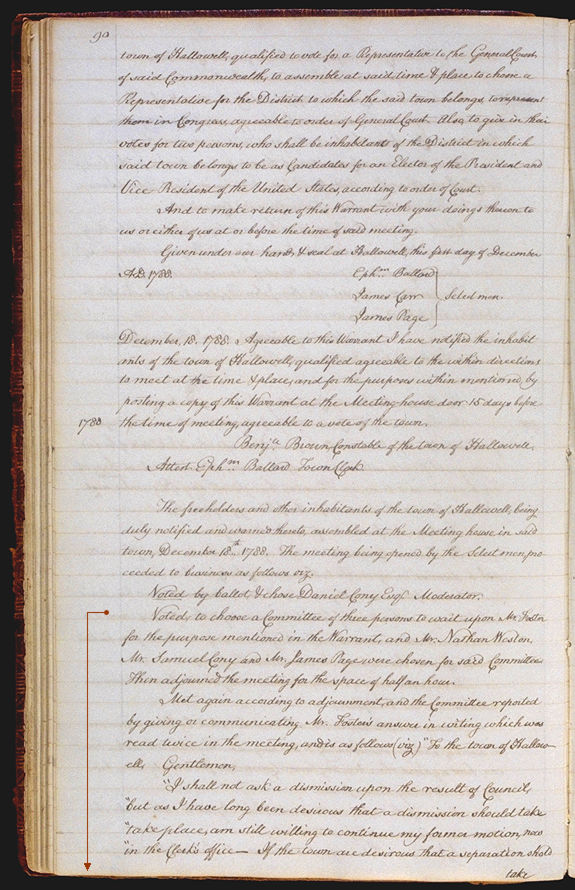 90
town of Hallowell, qualified to vote for a Representative to the General Court
of said Commonwealth, to assemble at said time & place to choose a
Representative for the District to which the said town belongs, to represent
them in Congress, agreeable to order of General Court. Also, to give in their
votes for two persons, who shall be inhabitants of the District in which
said town belongs to be as Candidates for an Elector of the President and
Vice President of the United States, according to order of Court.
And to make return of this Warrant with your doings thereon to
us or either of us at or before the time of said meeting.
Given under our hands & seal at Hallowell, this first day of December
A.D. 1788.
Ephm. Ballard
James Carr Selectmen.
James Page
December, 18. 1788. Agreeable to this Warrant I have notified the inhabit
ants of the town of Hallowell, qualified agreeable to the within directions
to meet at the time & place, and for the purposes within mentioned, by
posting a copy of this Warrant at the Meeting house door 15 days before
1788 the time of meeting, agreeable to a vote of the town.
Benja. Brown Constable of the town of Hallowell.
Attest. Ephm. Ballard Town Clerk
The freeholders and other inhabitants of the town of Hallowell, being
duly notified and warned thereto, assembled at the Meeting house in said
town, December 18th. 1788. The meeting being opened by the Selectmen, pro
ceeded to business as follows viz.
Voted by ballot, & chose Daniel Cony Esqr. Moderator.
Voted, to choose a Committee of three persons to wait upon Mr. Foster
for the purpose mentioned in the Warrant, and Mr. Nathan Weston.
Mr. Samuel Cony and Mr. James Page were chosen for said Committee
Then adjourned the meeting for the space of half an hour.
Met again according to adjournment, and the Committee reported
by giving or communicating Mr. Foster's answer in writing which was
read twice in the meeting, and is as follows (viz) "To the town of Hallow-
ell, Gentlemen,
"I shall not ask a dismission upon the result of Council,
"but as I have long been desirous that a dismission should take
"take place, am still willing to continue my former motion, now
"in the Clerk's office — If the town are desirous that a separation should
take